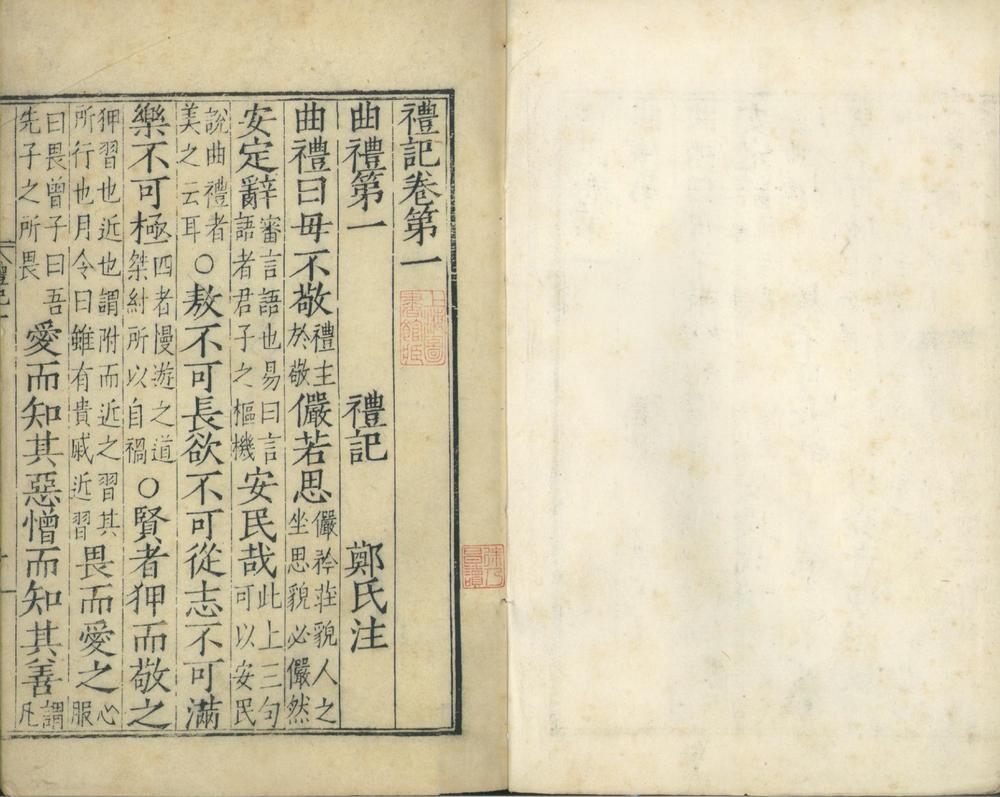 禮記卷第一
曲禮第一 禮記 鄭氏注
曲禮曰毋不敬禮主於敬儼若思儼矜莊貌人之坐思貌必儼然
安定辭審言語也易曰言語者君子之樞機安民哉此上三句可以安民
說曲禮者美之云耳○敖不可長欲不可從志不可滿
樂不可極四者慢遊之道桀紂所以自禍○賢者狎而敬之
狎習也近也謂附而近之習其所行也月令曰雖有貴戚近習畏而愛之心服
曰畏曾子曰吾先子之所畏愛而知其惡憎而知其善謂凡
上海圖書館藏
徐乃昌讀